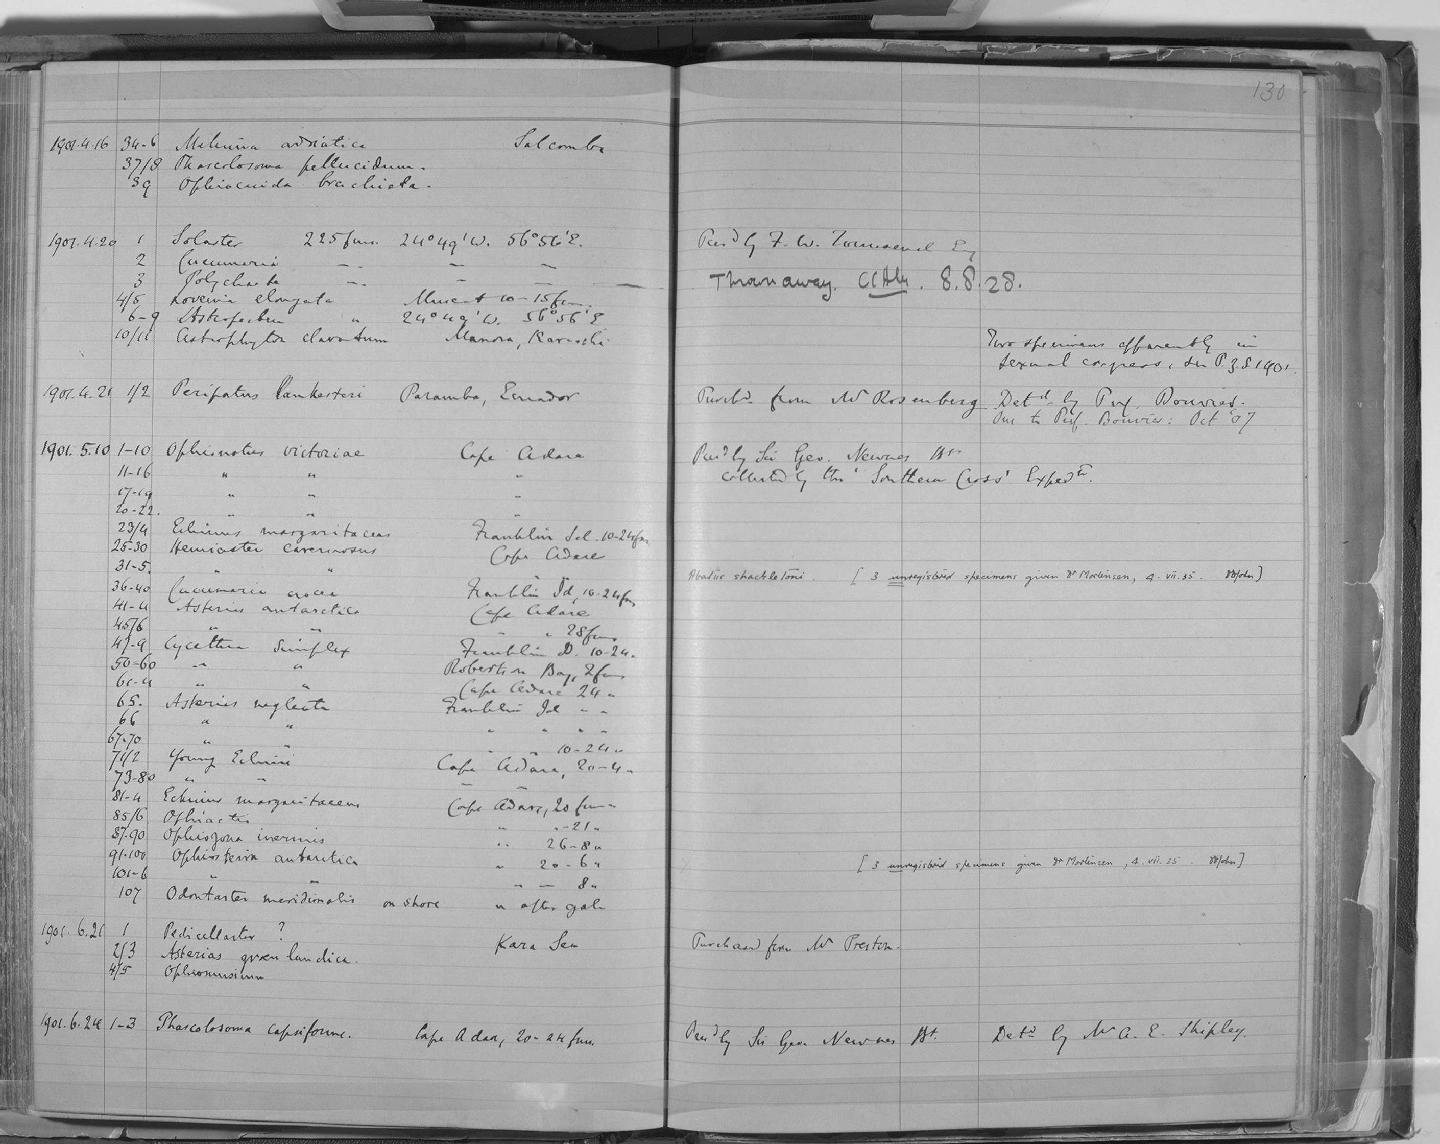 130
1901.4.16 34-6 Melinna adriatica Salcombe
37/8 Phascolosoma pellucidum.
39 Ophiocnida brachiata.
1901.4.20 1 Solaster 225 fms. 24°49'W. 56°56'E. Pres'd by F. W. Townsend Esq
2 Cucumaria — — —
3 Polychaeta — — — — Thrown away. 8.8.28.
4/5 Lovenia elongata Muscat 10-15 fms.
6-9 Astropecten " 24°49'W. 56°56'E
10/11 Astrophyton clavatum Manora, Karachi Two specimens apparently in
sexual congress, see P.Z.S 1901.
1901.4.21 1/2 Peripatus lankesteri Paramba, Ecuador Purch'd. from Mr Rosenberg Det'd. by Prof. Bouvier.
One to Prof. Bouvier: Oct '07
1901.5.10 1-10 Ophionotus victoriae Cape Adare Pres'd by Sir Geo. Newnes Bt
11-16 " " " collected by the 'Southern Cross' Exped'n.
17-19 " " "
20-22. " " "
23/4 Echinus margaritaceus Franklin Isl. 10-24 fms
25-30 Hemiaster cavernosus Cape Adare
31-5. " " Abatus shackletoni [3 unregistered specimens given Dr Mortensen, 4.vii.35.]
36-40 Cucumaria crocea Franklin Id, 10-24 fms
41-4 Asterias antarctica Cape Adare
45/6 " " " " 28 fms
47-9 Cycethra simplex Franklin I. 10-24 "
50-60 " " Robertson Bay, 2 fms
61-4 " " Cape Adare 24 "
65. Asterias neglecta Franklin Id " "
66 " " " " " "
67-70 " " " " 10-24 "
71/2 Young Echini Cape Adare, 20-4 "
73-80 " " — —
81-4 Echinus margaritaceus Cape Adare, 20 fms "
85/6 Ophiactis " "-21 "
87-90 Ophiozona inermis " 26-8 "
91-100 Ophiosteira antarctica " 20-6 " [3 unregistered specimens given Dr Mortensen, 4.vii.35.]
101-6 " " " — 8 "
107 Odontaster meridionalis on shore " after gale
1901.6.21 1 Pedicellaster ? Kara Sea Purchased from Mr Preston.
2/3 Asterias groenlandica.
4/5 Ophiomusium
1901.6.24 1-3 Phascolosoma capsiforme. Cape Adare, 20-24 fms. Pres'd by Sir Geo. Newnes Bt. Det'd by Mr A. E. Shipley.